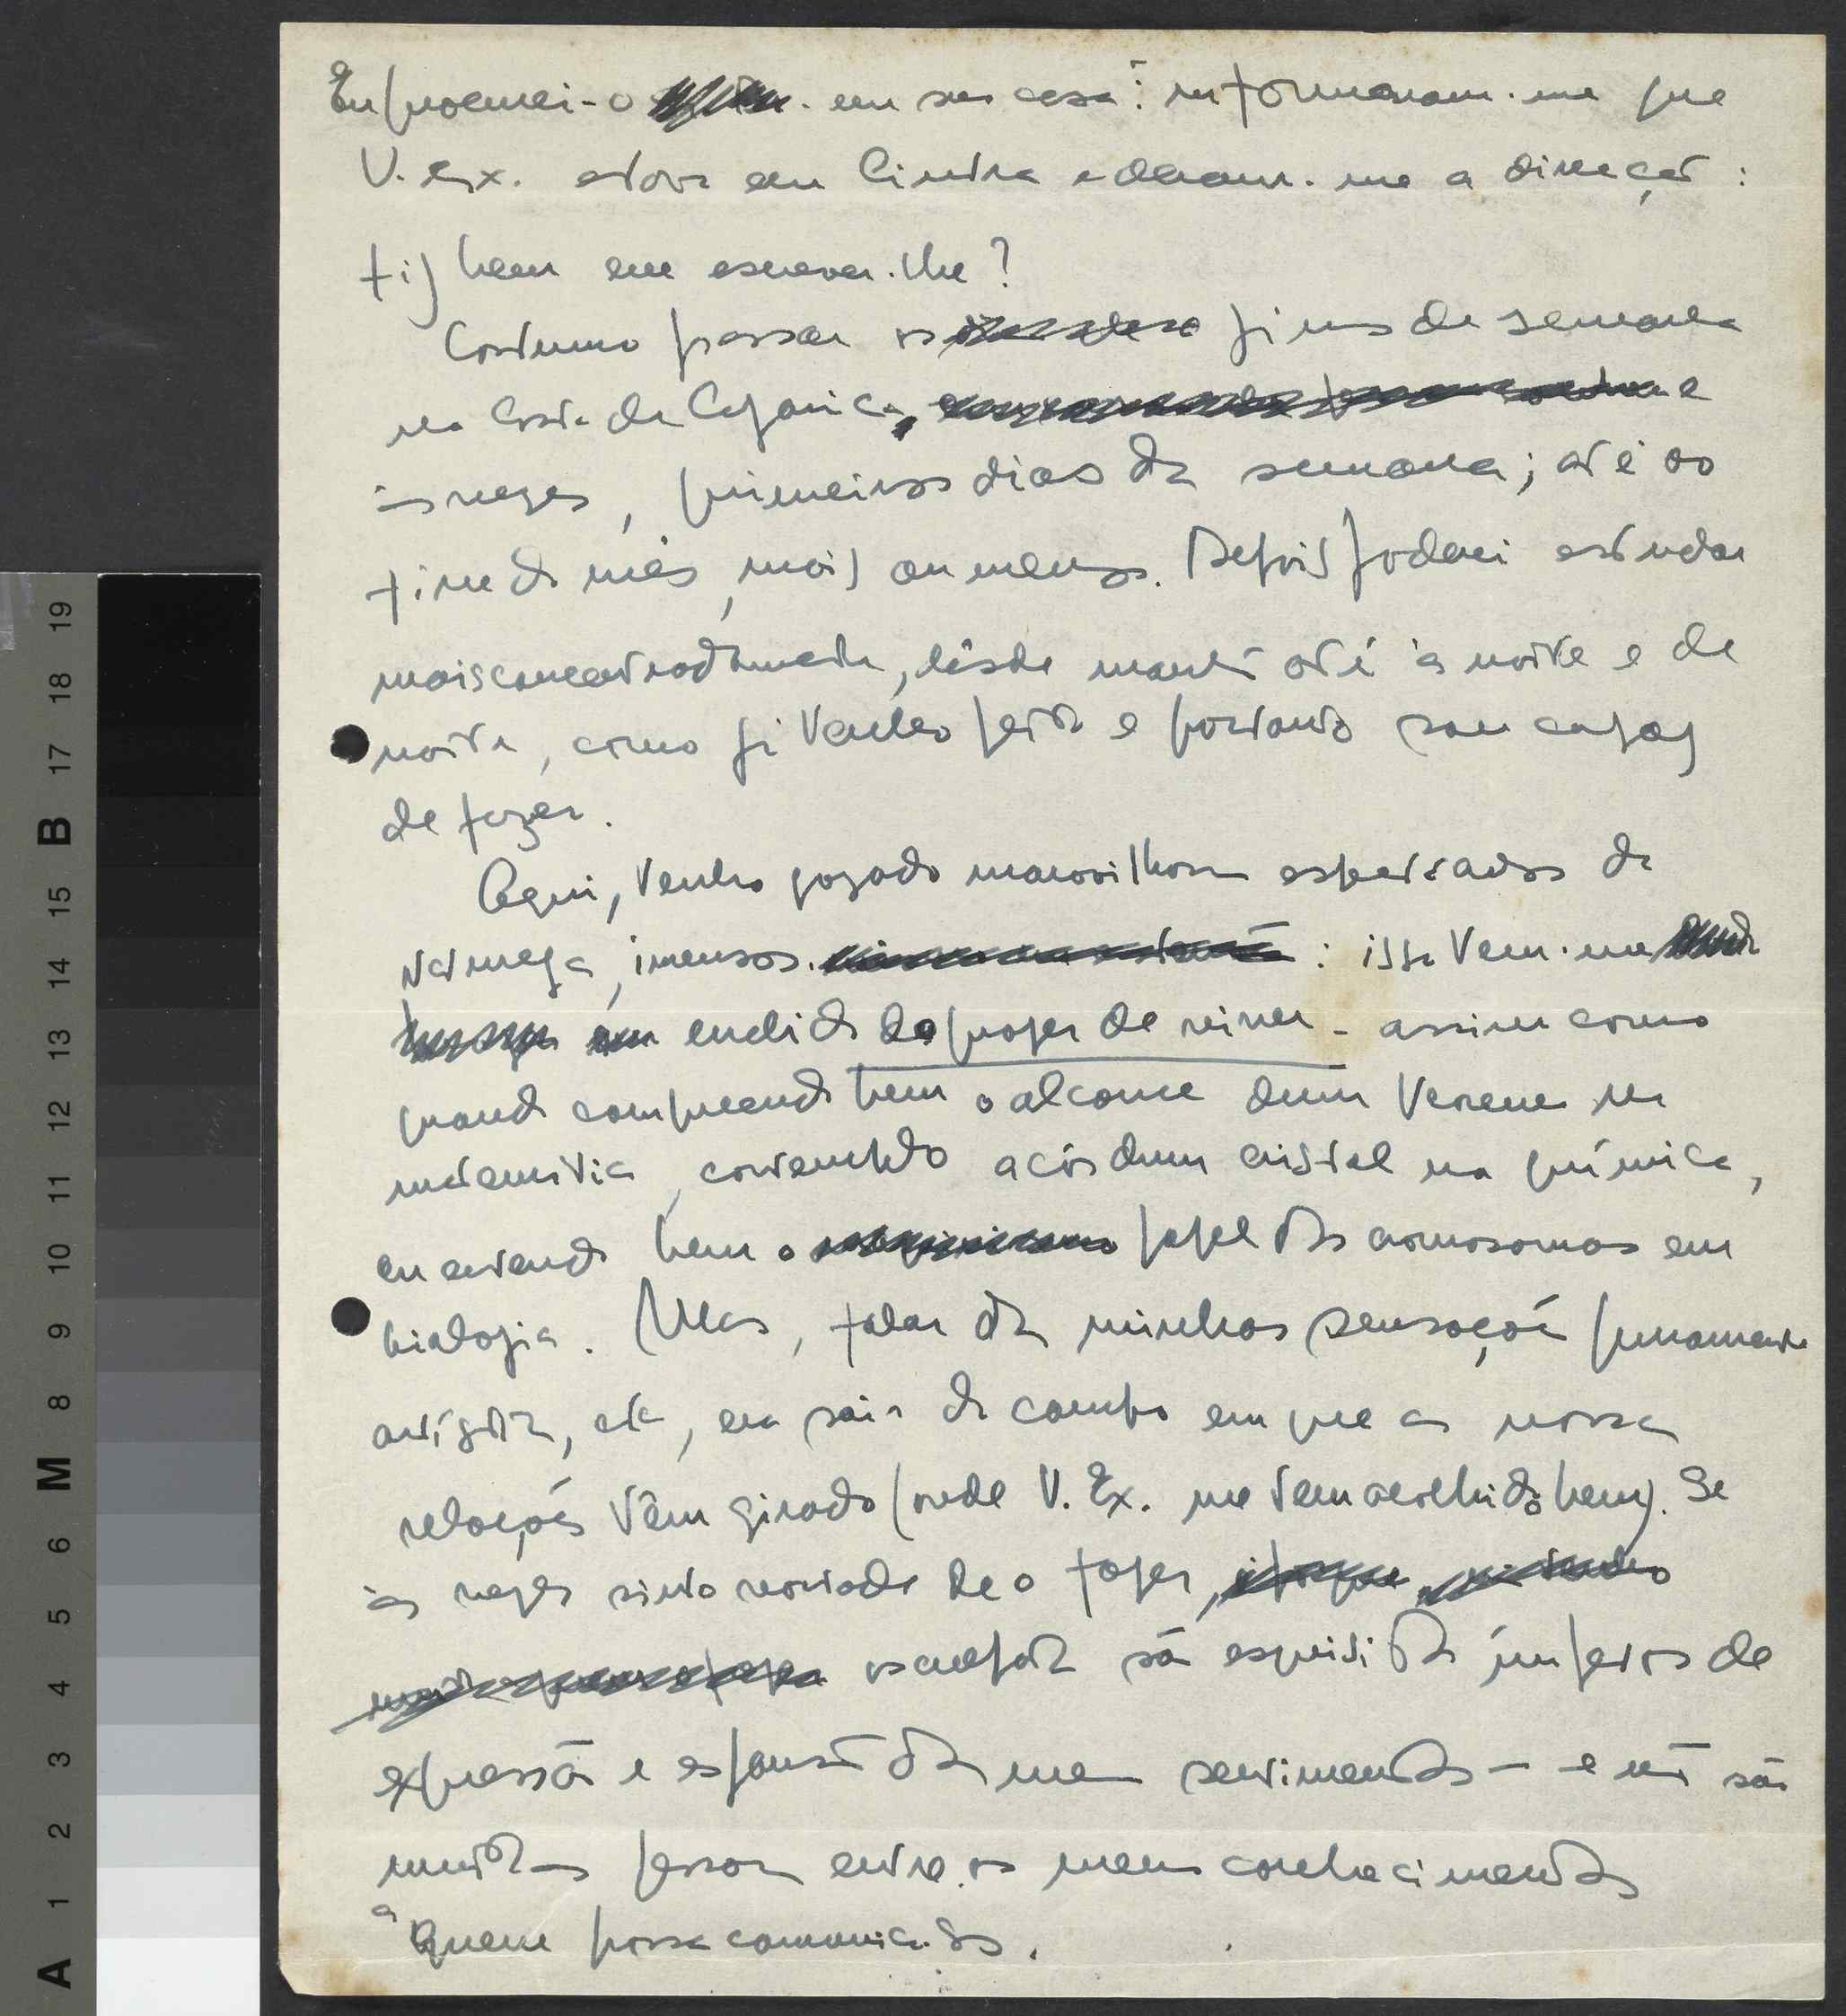 Eu procurei-o em sua casa: informaram-me que
V. Ex. estava em Cintra e deram-me a direcção:
fiz bem em escrever-lhe?
Costumo passar os fins de semana
na Costa da Caparica, e
às vezes, primeiros dias da semana; até ao
fim do mês, mais ou menos. Depois poderei estudar
mais concentradamente, desde manhã até à noite e de
noite, como já tenho feito e portanto sou capaz
de fazer.
Aqui, tenho gozado maravilhosos espectáculos da
natureza, imensos : isso tem-me
enchido do prazer de viver - assim como
quando compreendo bem o alcance dum teorema na
matemática, contemplo a côr dum cristal na química,
ou entendo bem o papel dos cromosomas em
biologia. Mas, falar das minhas sensações puramente
artísticas, etc, era sair do campo em que as nossas
relações têm girado (onde V. Ex. me tem acolhido bem). Se
às vezes sinto vontade de o fazer,
os culpados são esquisitos ímpetos de
expressão e expansão dos meus sentimentos - e não são
muitas as pessoas entre os meus conhecimentos
a quem possa comunicá-los.